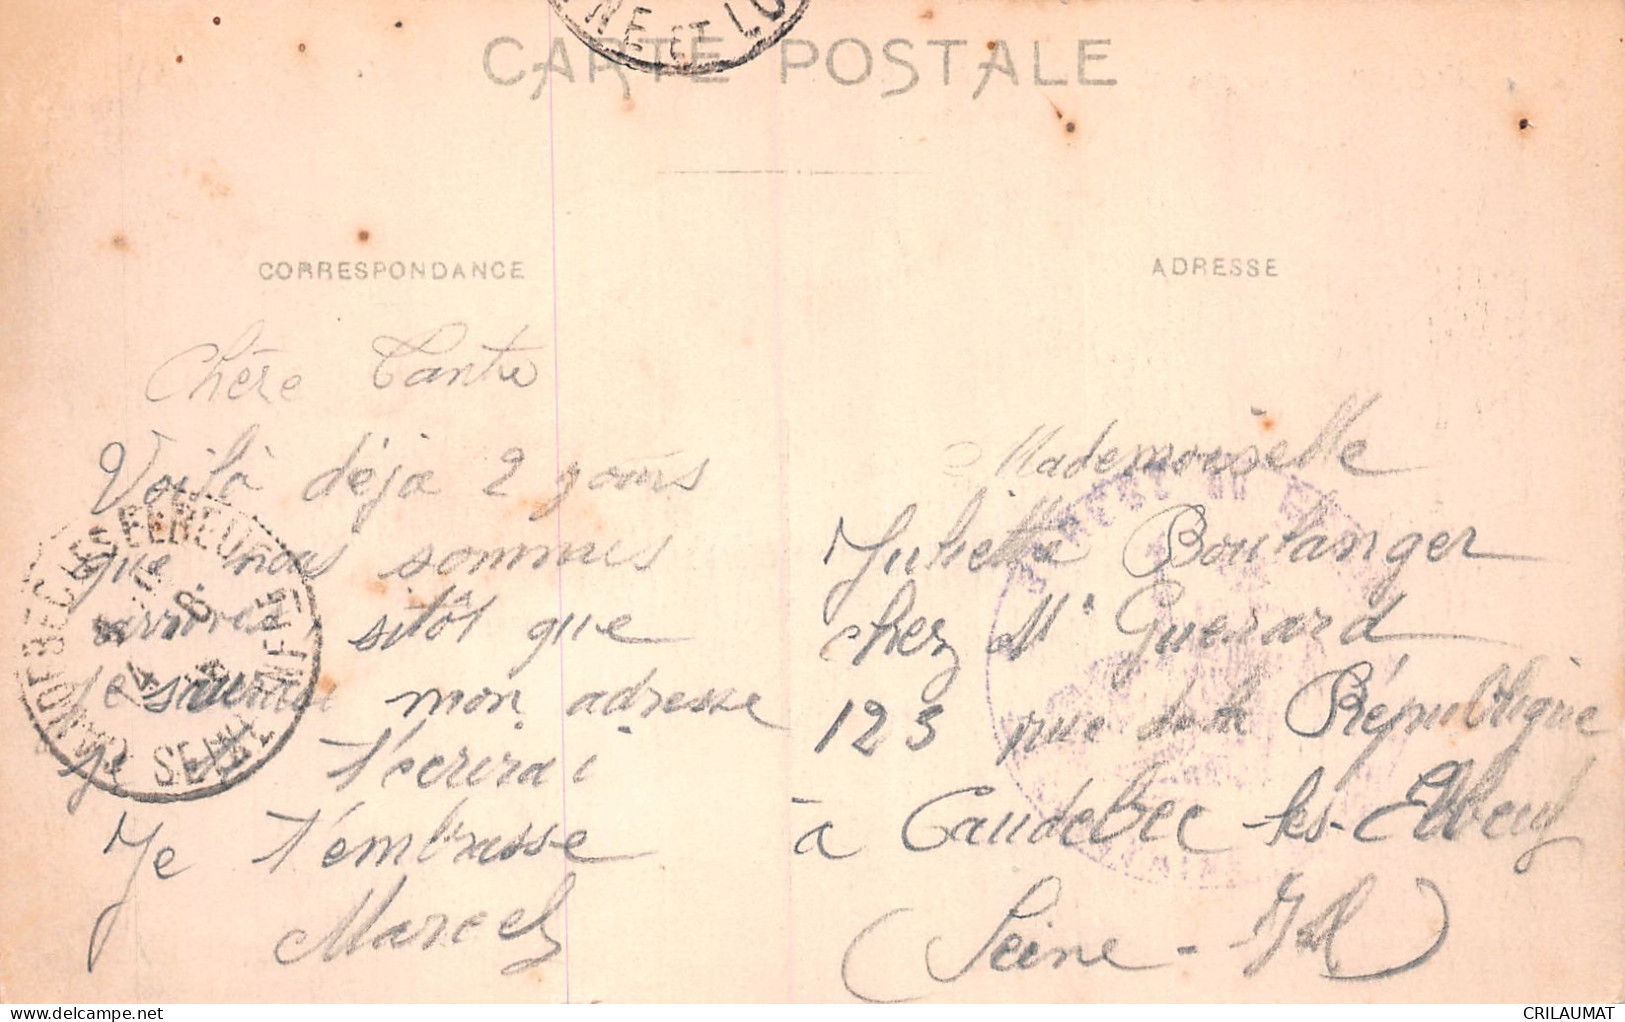 NE ET LO
CARTE POSTALE
CORRESPONDANCE
ADRESSE
Chère Tante
Voilà déjà 2 jours
que nous sommes
arrivés, sitôt que
je saurai mon adresse
je t'ecrirai
Je t'embrasse
Marcel
Mademoiselle
Juliette Boulanger
chez Mr Guerard
123 rue de la République
à Caudebec-les-Elbeuf
(Seine-Inf)
CAUDEBEC LES ELBEUF
SEINE INFRE
CRILAUMAT